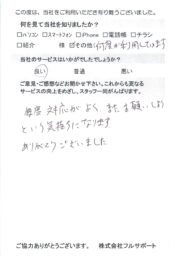 この度は、当社をご利用いただき有り難うございました。
何を見て当社を知りましたか？
□パソコン □スマートフォン □iPhone □電話帳 □チラシ
□紹介 様 ☑その他(何度か利用しています)
当社のサービスはいかがでしたでしょうか？
良い 普通 悪い
ご意見・ご感想などお聞かせ下さい。これからも更なる
サービスの向上をめざし、スタッフ一同がんばります。
毎度 対応がよく、また、お願いしよう
という気持ちになります
ありがとうございました
ご協力ありがとうございます。 株式会社フルサポート